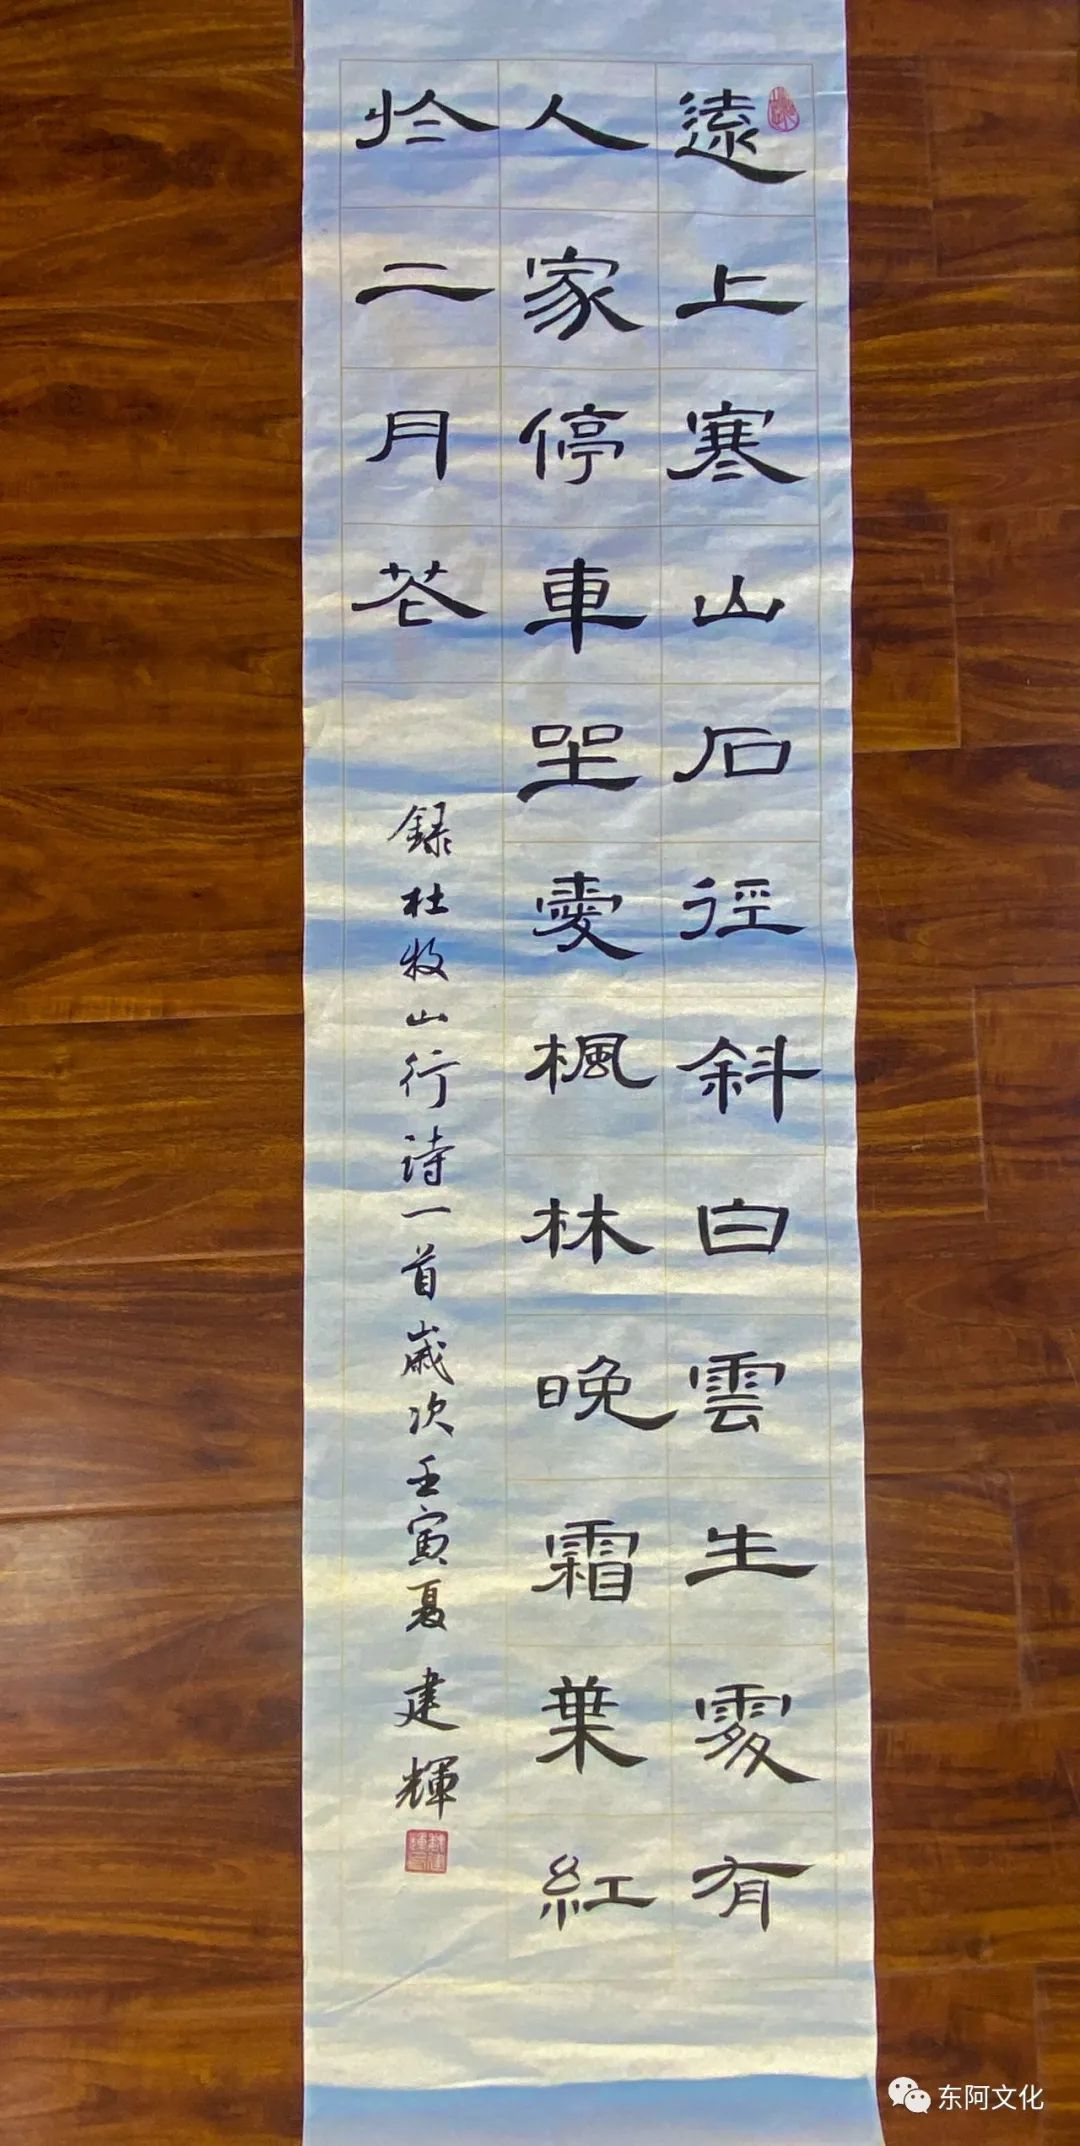 遠上寒山石徑斜白雲生處有
人家停車坐愛楓林晚霜葉紅
於二月花
録杜牧山行诗一首歲次壬寅夏建輝
东阿文化